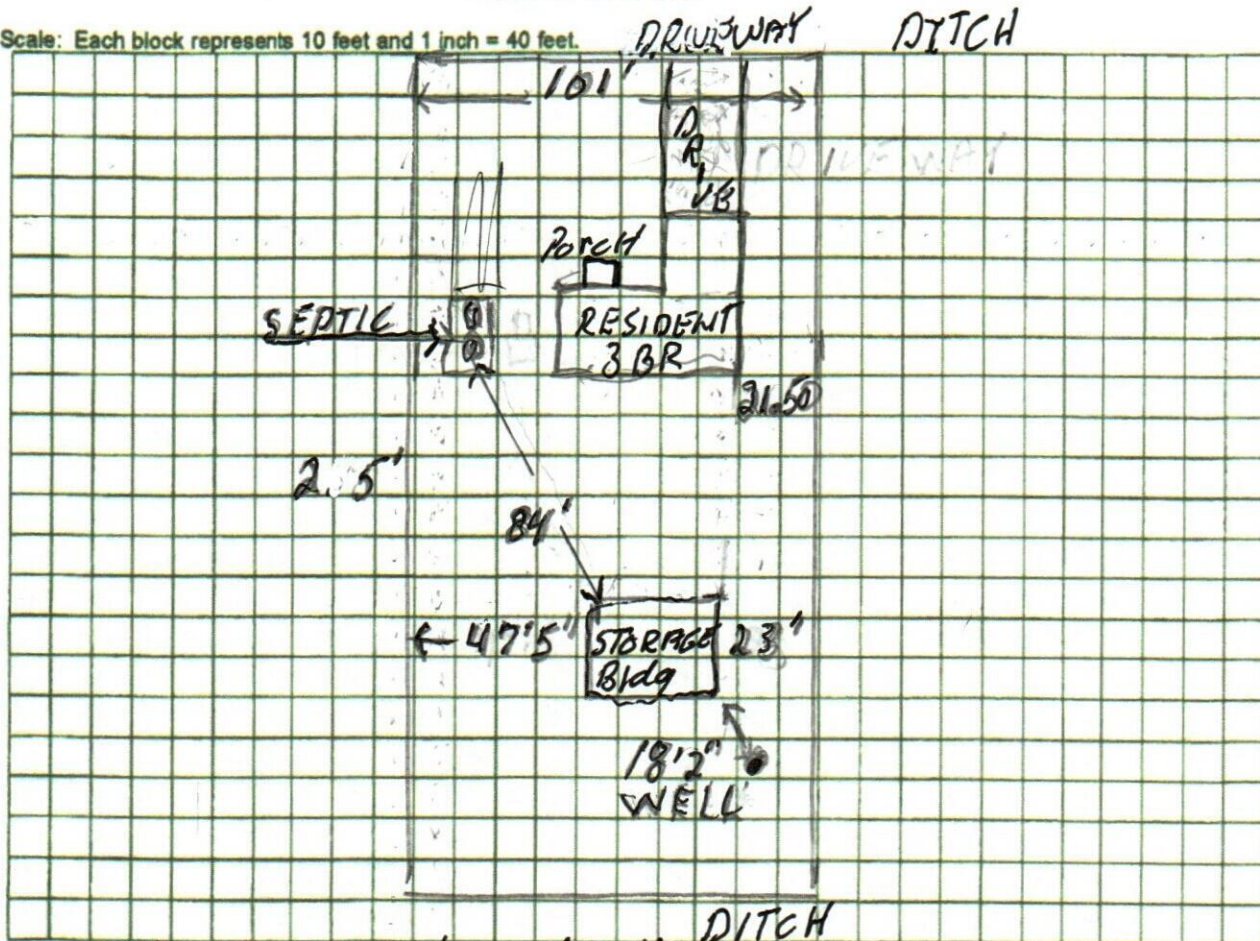 Scale: Each block represents 10 feet and 1 inch = 40 feet.
DRIVEWAY
DITCH
101'
DRIVE
DRIVEWAY
PorCH
SEPTIC
RESIDENT
3 BR
21.50
84'
47'5"
STORAGE
Bldg
23'
18'2"
WELL
DITCH